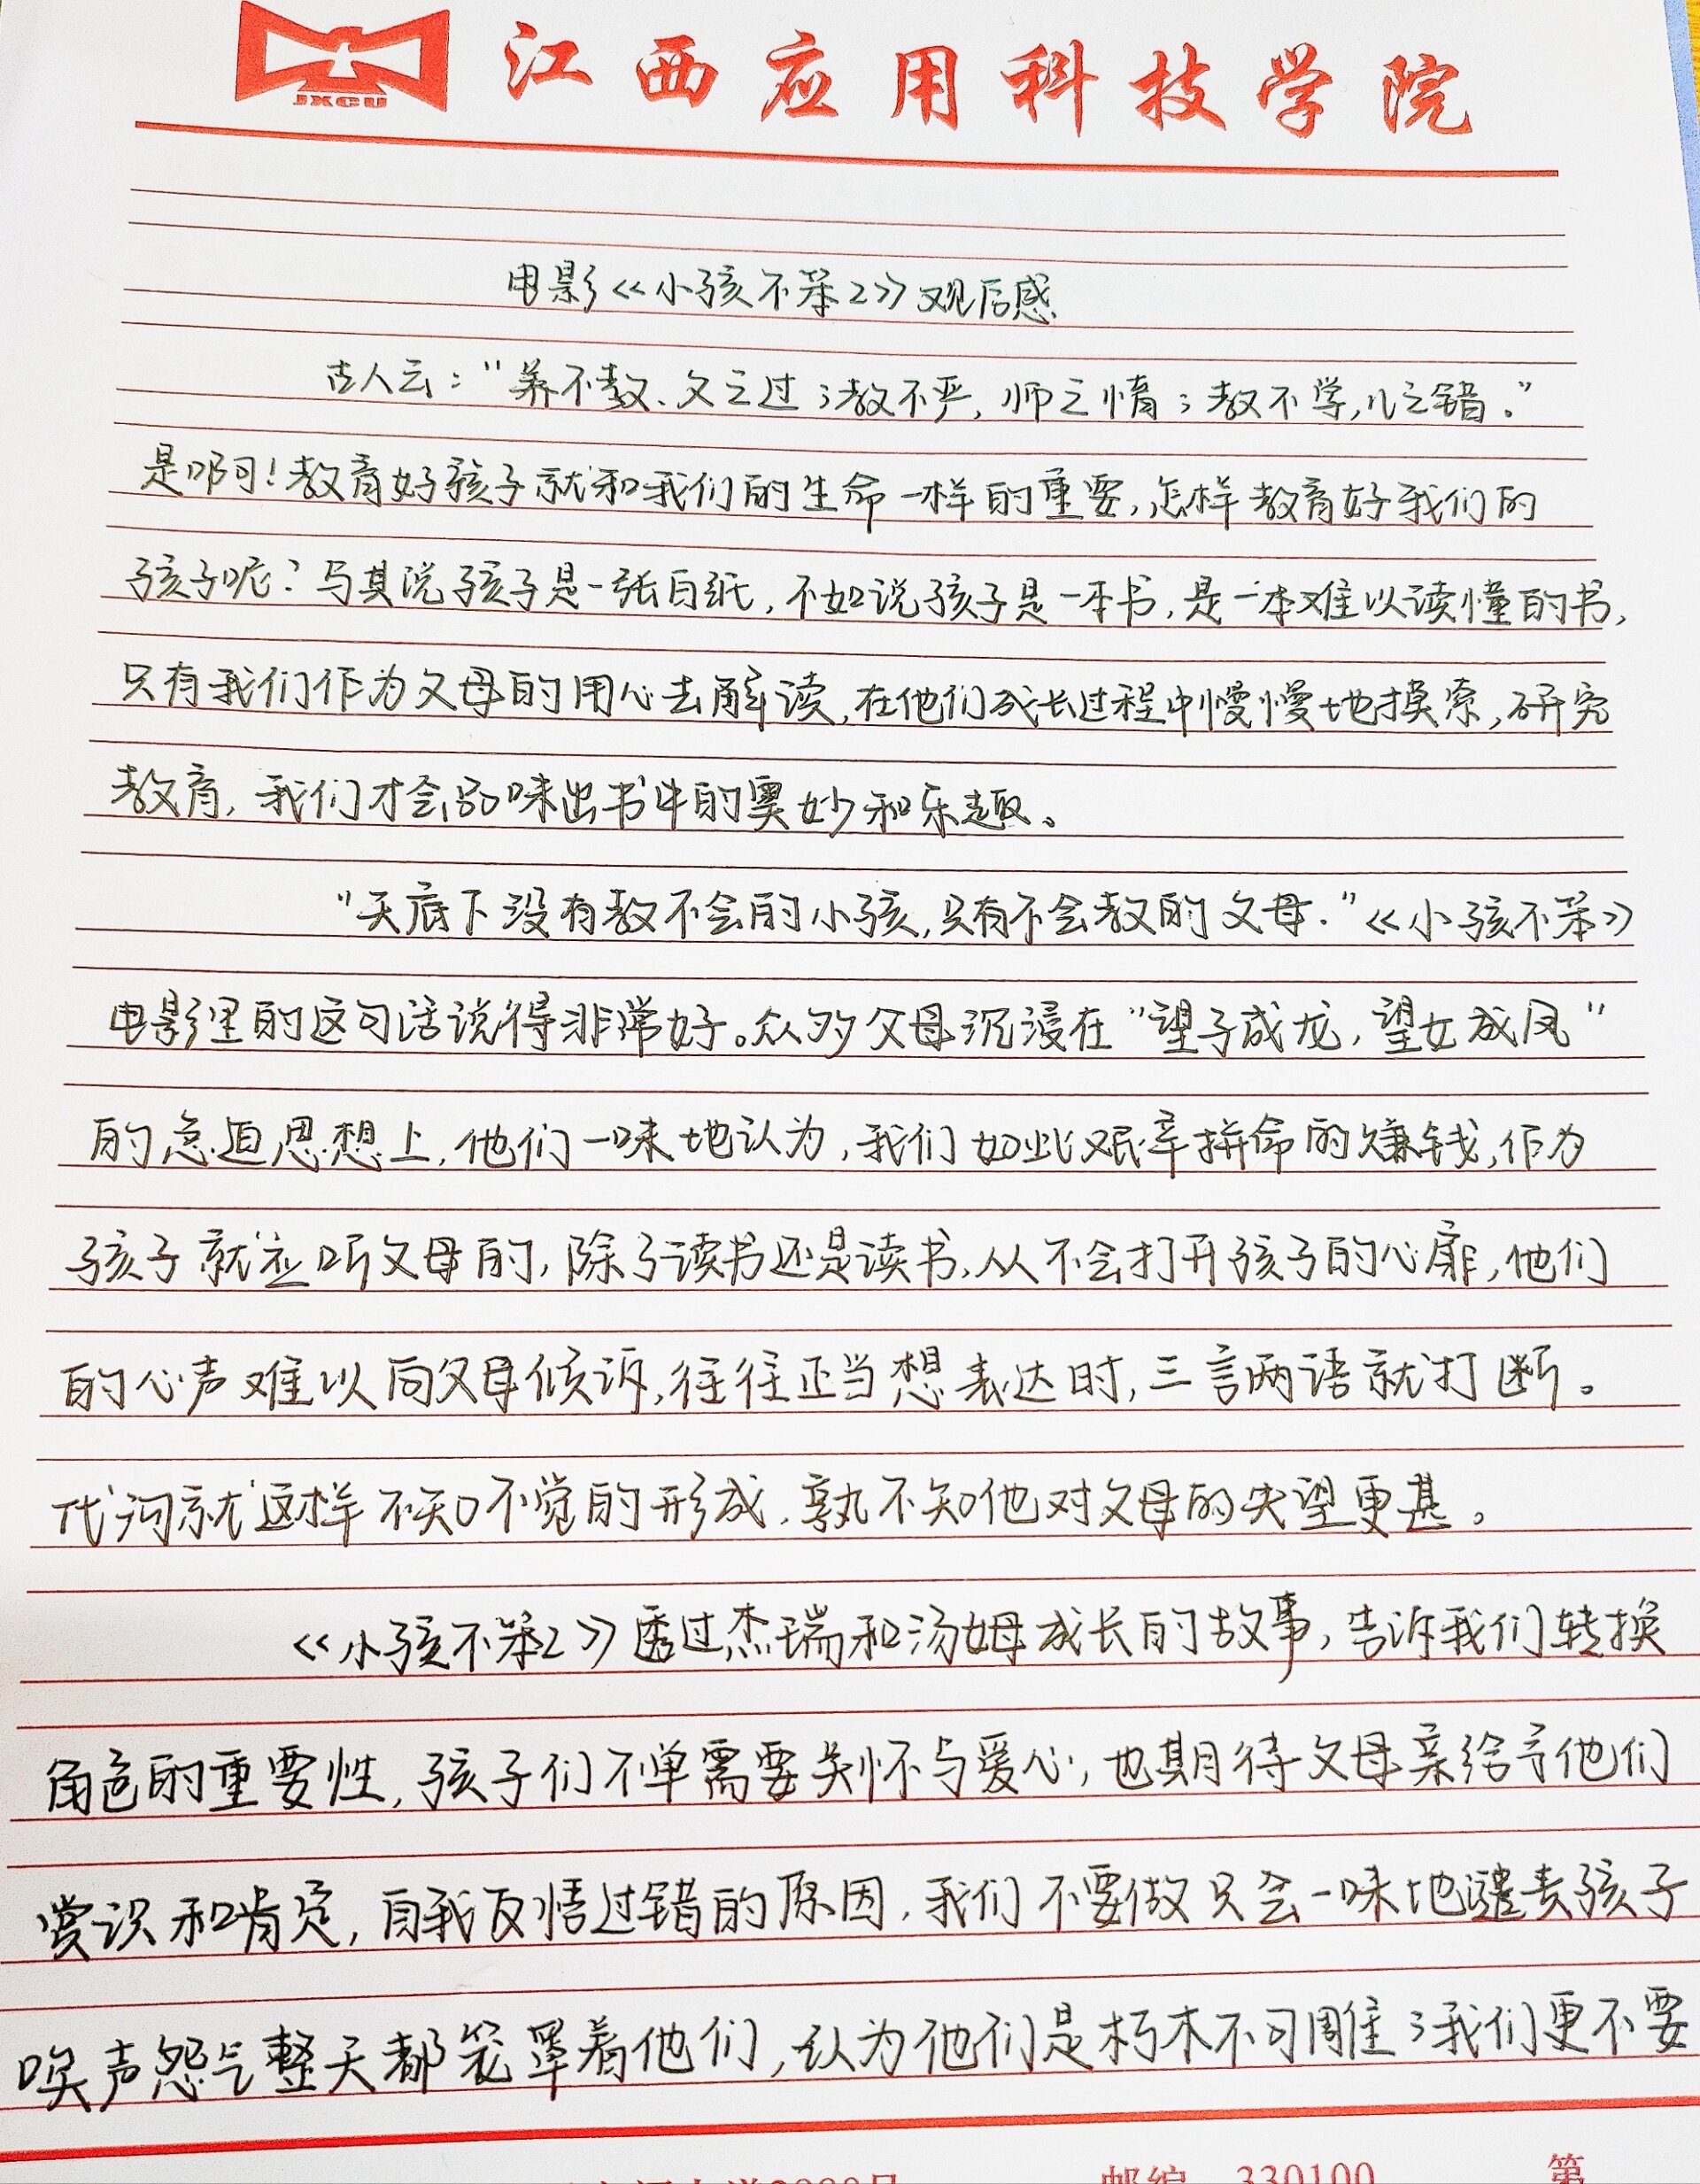 JXCU
江西应用科技学院
电影《小孩不笨2》观后感
古人云："养不教、父之过;教不严,师之惰;教不学,儿之错."
是啊!教育好孩子就和我们的生命一样的重要,怎样教育好我们的
孩子呢?与其说孩子是一张白纸,不如说孩子是一本书,是一本难以读懂的书,
只有我们作为父母的用心去解读,在他们成长过程中慢慢地摸索,研究
教育,我们才会品味出书中的奥妙和乐趣、
"天底下没有教不会的小孩,只有不会教的父母."《小孩不笨》
电影里的这句话说得非常好。众多父母沉浸在"望子成龙,望女成凤"
的急迫思想上,他们一味地认为,我们如此艰辛拼命的赚钱,作为
孩子就应听父母的,除了读书还是读书,从不会打开孩子的心扉,他们
的心声难以向父母倾诉,往往正当想表达时,三言两语就打断。
代沟就这样不知不觉的形成,孰不知他对父母的失望更甚。
《小孩不笨2》透过杰瑞和汤姆成长的故事,告诉我们转换
角色的重要性,孩子们不单需要关怀与爱心,也期待父母亲给予他们
赏识和肯定,自我反悟过错的原因,我们不要做只会一味地谴责孩子
唉声怨气整天都笼罩着他们,认为他们是朽木不可雕;我们更不要
邮编 330100 第